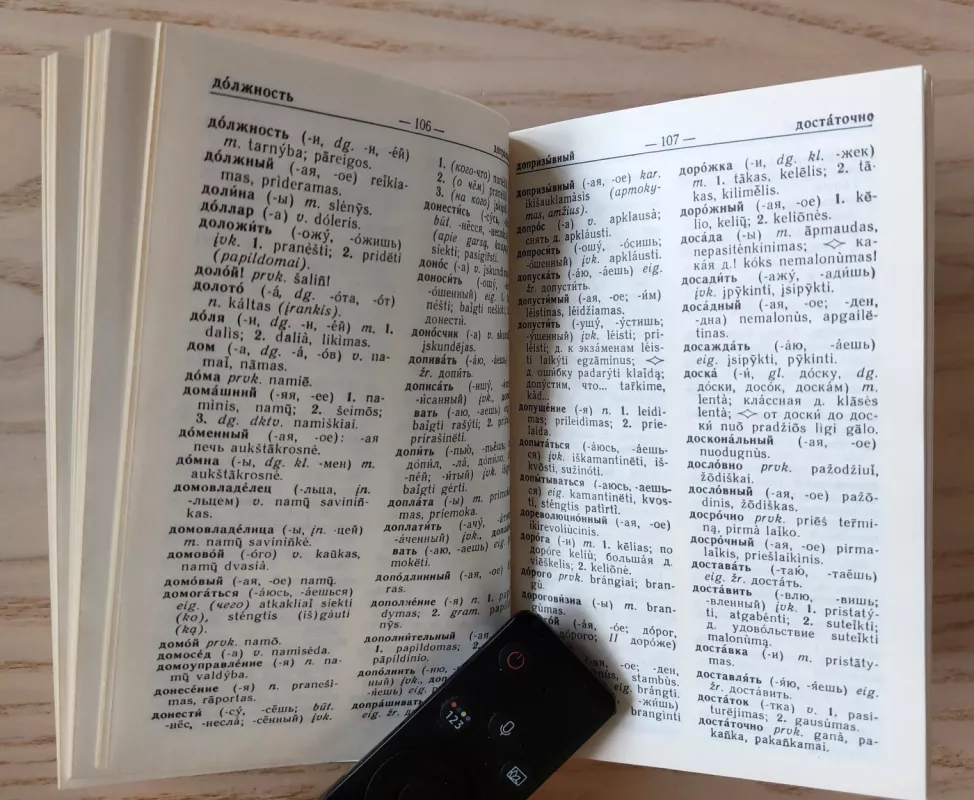 до́лжность
— 106 —
до́лжность (-и, dg. -и, -е́й)
m. tarnýba; pãreigos.
до́лжный (-ая, -ое) reĩkia-
mas, prideramas.
доли́на (-ы) m. slėnỹs.
до́ллар (-а) v. dóleris.
доложи́ть (-ожу́, -о́жишь)
įvk. 1. pranèšti; 2. pridėti
(papildomai).
доло́й! prvk. šaliñ!
долото́ (-а́, dg. -о́та, -о́т)
n. káltas (įrankis).
до́ля (-и, dg. -и, -е́й) m. 1.
dalis; 2. dalià, likimas.
дом (-а, dg. -а́, -о́в) v. na-
maĩ, nãmas.
до́ма prvk. namiẽ.
дома́шний (-яя, -ее) 1. na-
minis, namų̃; 2. šeimõs;
3. dg. dktv. namiškiai.
до́менный (-ая, -ое): -ая
печь aukštãkrosnė.
до́мна (-ы, dg. kl. -мен) m.
aukštãkrosnė.
домовладе́лец (-льца, įn.
-льцем) v. namų̃ saviniñ-
kas.
домовладе́лица (-ы, įn. -цей)
m. namų̃ saviniñkė.
домово́й (-о́го) v. kaũkas,
namų̃ dvasià.
домо́вый (-ая, -ое) namų̃.
домога́ться (-а́юсь, -а́ешься)
eig. (чего) atkakliaĩ siekti
(ko), sténgtis (iš)gáuti
(ką).
домо́й prvk. namõ.
домосе́д (-а) v. namiséda.
домоуправле́ние (-я) n. na-
mų̃ valdýba.
донесе́ние (-я) n. praneši-
mas, rãportas.
донести́ (-су́, -сёшь; būt.
-нёс, -несла́; -сённый) įvk.
1. (кого-что)
2. (о чём)
3. (на кого)
донести́сь
būt. -нёсся,
(apie garsą,
siekti; pasigir̃sti.
доно́с (-а) v.
доноси́ть
-о́шенный) eig.
nėšti; baĩgti
донести.
доно́счик (-а) v.
įskundėjas.
допива́ть (-а́ю, -а́ешь)
žr. допи́ть.
дописа́ть (-ишу́,
-и́санный) įvk.,
вать (-аю, -аешь)
baĩgti rašýti;
prirašinėti.
допи́ть (-пью́, -пьёшь;
до́пил, -ла́,
-пе́й; -и́тый) įvk.
baĩgti gérti.
допла́та (-ы) m.
mas, priemoka.
доплати́ть (-ачу́,
-а́ченный) įvk.,
вать (-аю, -аешь)
mokėti.
допо́длинный (-ая, -ое)
ras.
дополне́ние (-я) n. 1.
dymas; 2. gram.
дополни́тельный (-ая
1. papildomas; 2.
pãpildinio.
допо́лнить (-ню,
-енный) įvk.,
-я́ешь) eig.
допра́шивать
eig. žr.
допризы́вный
— 107 —
доста́точно
допризы́вный (-ая, -ое) kar.
ikišaukiamàsis (apmoky-
mas, amžius).
допро́с (-а) v. apklausà;
снять д. apkláusti.
допроси́ть (-ошу́, -о́сишь;
-о́шенный) įvk. apkláusti.
допуска́ть (-а́ю, -а́ешь) eig.
žr. допусти́ть.
допусти́мый (-ая, -ое; -и́м)
léistinas, léidžiamas.
допусти́ть (-ущу́, -у́стишь;
-у́щенный) įvk. léisti; pri-
léisti; д. к экза́менам léis-
ti laikýti egzãminus; <>
д. оши́бку padarýti klaĩdą;
допу́стим, что... tar̃kime,
kàd...
допуще́ние (-я) n. 1. leidi-
mas; prileidimas; 2. prie-
laida.
допыта́ться (-а́юсь, -а́ешь-
ся) įvk. iškamantinėti, iš-
kvõsti, sužinóti.
допы́тываться (-аюсь, -аешь-
ся) eig. kamantinėti, kvos-
ti, sténgtis patìrti.
дореволюцио́нный (-ая, -ое)
ikirevoliùcinis.
доро́га (-и) m. 1. kẽlias; по
доро́ге keliù; больша́я д.
viẽškelis; 2. keliõnė.
до́рого prvk. brángiai; bran-
gù.
дорогови́зна (-ы) m. bran-
gùmas.
(-а́я, -о́е; до́рог,
до́рого; II доро́же)
-ая, -ое; -ден,
stambùs,
brángti.
-жи́шь)
branginti
доро́жка (-и, dg. kl. -жек)
m. 1. tãkas, kelẽlis; 2. tã-
kas, kilimėlis.
доро́жный (-ая, -ое) 1. kẽ-
lio, kelių̃; 2. keliõnės.
доса́да (-ы) m. apmaudas,
nepasiténkinimas; <> ка-
ка́я д.! kóks nemalonùmas!
досади́ть (-ажу́, -ади́шь)
įvk. įpỹkinti, įsipỹkti.
доса́дный (-ая, -ое; -ден,
-дна) nemalonùs, apgailė-
tinas.
досажда́ть (-а́ю, -а́ешь)
eig. įsipỹkti, pỹkinti.
доска́ (-и́, gl. до́ску, dg.
до́ски, досо́к, доска́м) m.
lentà; кла́ссная д. klãsės
lentà; <> от доски́ до дос-
ки́ nuõ pradžiõs lìgi gãlo.
доскона́льный (-ая, -ое)
nuodugnùs.
досло́вно prvk. pažodžiuĩ,
žõdiškai.
досло́вный (-ая, -ое) pažõ-
dinis, žõdiškas.
досро́чно prvk. priẽš ter̃mi-
ną, pirmà laĩko.
досро́чный (-ая, -ое) pirma-
laĩkis, priešlaikinis.
достава́ть (-таю́, -таёшь)
eig. žr. доста́ть.
доста́вить (-влю, -вишь;
-вленный) įvk. 1. pristatý-
ti, atgabénti; 2. suteĩkti;
д. удово́льствие suteĩkti
malonùmą.
доста́вка (-и) m. pristãty-
mas.
доставля́ть (-я́ю, -я́ешь) eig.
žr. доста́вить.
доста́ток (-тка) v. 1. pasi-
turėjimas; 2. gausùmas.
доста́точно prvk. ganà, pa-
kañka, pakañkamai.
123